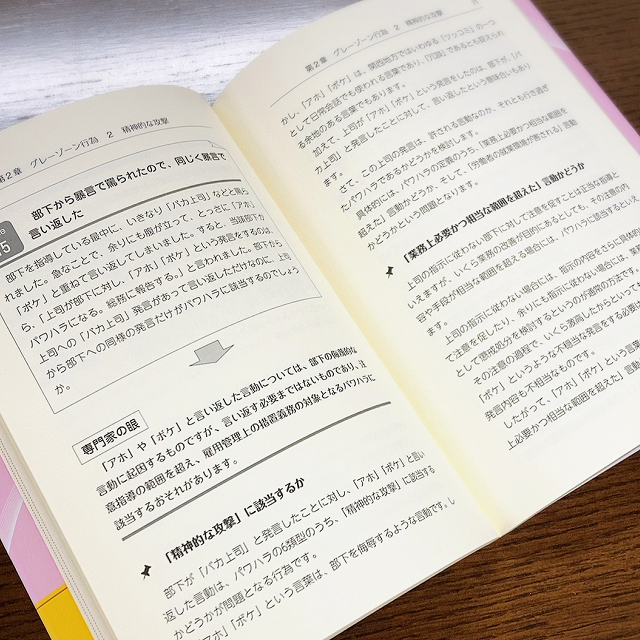 第2章 グレーゾーン行為 2 精神的な攻撃
5
部下から暴言で罵られたので、同じく暴言で
言い返した
部下を指導している最中に、いきなり「バカ上司」などと罵ら
れました。急なことで、余りにも腹が立って、とっさに「アホ」
「ボケ」と重ねて言い返してしまいました。すると、当該部下か
ら、「上司が部下に対し、「アホ」「ボケ」という発言をするのは、
パワハラになる。総務に報告する。」と言われました。部下から
上司への「バカ上司」発言があって言い返しただけなのに、上司
から部下への同様の発言だけがパワハラに該当するのでしょう
か。
専門家の眼
「アホ」や「ボケ」と言い返した言動については、部下の侮辱的な
言動に起因するものですが、言い返す必要まではないものであり、注
意指導の範囲を超え、雇用管理上の措置義務の対象となるパワハラに
該当するおそれがあります。
「精神的な攻撃」に該当するか
部下が「バカ上司」と発言したことに対し、「アホ」「ボケ」と言い
返した言動は、パワハラの6類型のうち、「精神的な攻撃」に該当する
かどうかが問題となる行為です。
「アホ」「ボケ」という言葉は、部下を侮辱するような言動です。し
第2章 グレーゾーン行為 2 精神的な攻撃
かし、「アホ」「ボケ」は、関西地方ではいわゆる「ツッコミ」の一つ
として日常会話でも使われる言葉であり、「冗談」であるとも捉えられ
る余地のある言葉でもあります。
加えて、上司が「アホ」「ボケ」という発言をしたのは、部下が、「バ
カ上司」と発言したことに対して、言い返したという意味合いもあり
ます。
さて、この上司の発言は、許される言動なのか、それとも行き過ぎ
たパワハラであるかどうかを検討します。
具体的には、パワハラの定義のうち、「業務上必要かつ相当な範囲を
超えた」言動かどうか、そして、「労働者の就業環境が害される」言動
かどうかという問題となります。
「業務上必要かつ相当な範囲を超えた」言動かどうか
上司の指示に従わない部下に対して注意を促すことは正当な指導と
いえますが、いくら業務の改善が目的にあるとしても、その注意の内
容や手段が相当な範囲を超える場合には、パワハラに該当するといえ
ます。
上司の指示に従わない場合には、指示の内容をさらに具体的
て注意を促したり、余りにも指示に従わない場合には、業務
として懲戒処分を検討するというのが通常の方法です。
その注意の過程で、いくら激高したからといって
「ボケ」というような不相当な発言をする必要は
発言内容も不相当なものです。
したがって、「アホ」「ボケ」という言葉
上必要かつ相当な範囲を超えた」言動